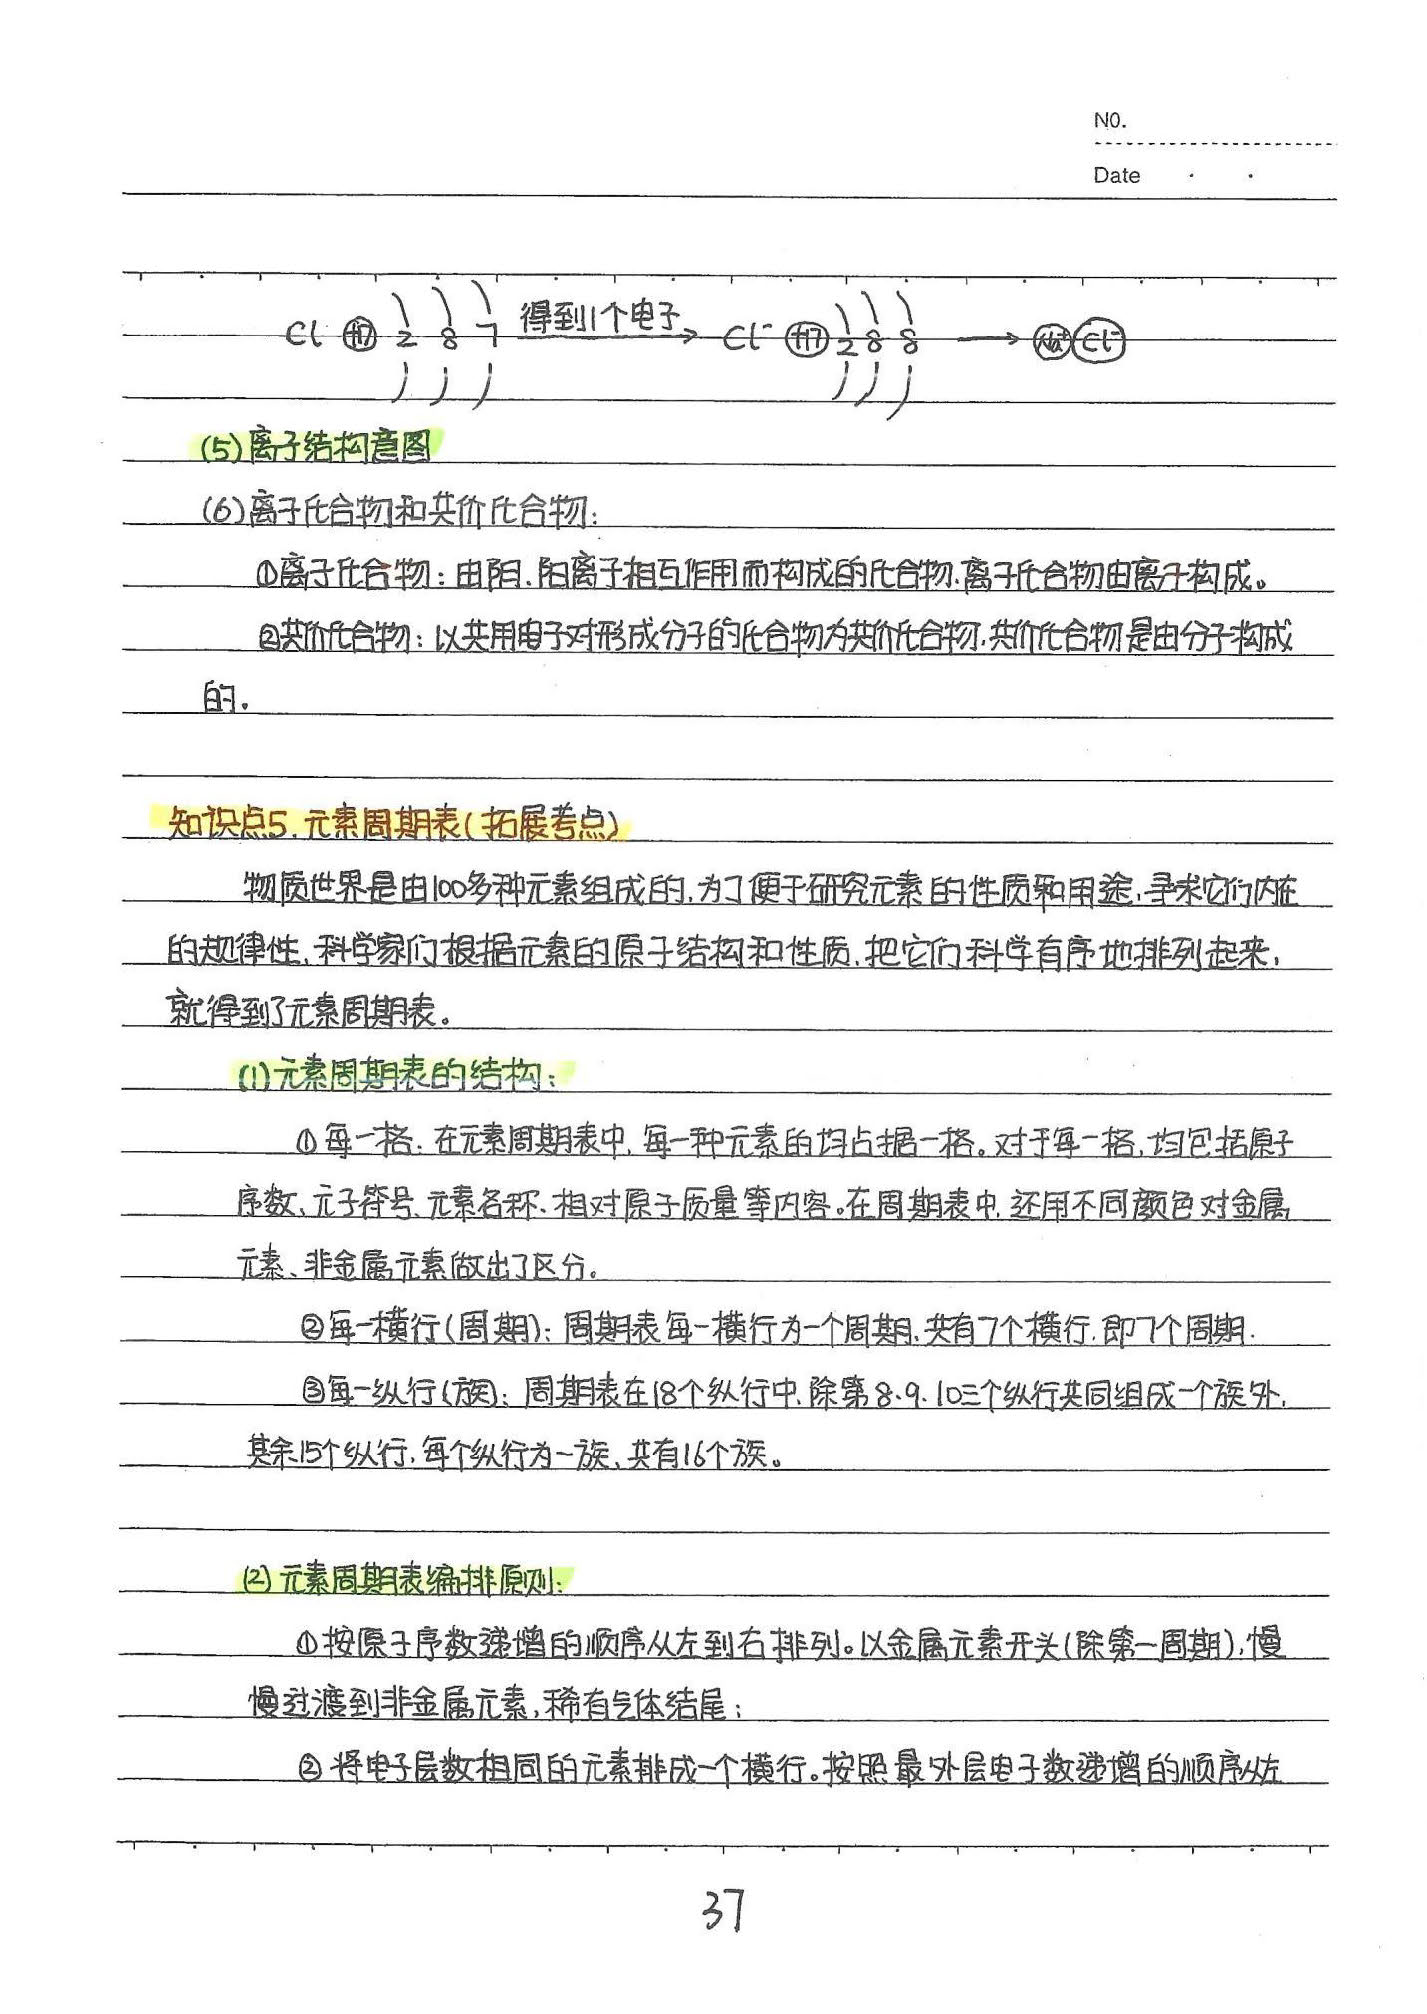 NO.
Date
Cl +17 2 8 7 得到1个电子 → Cl⁻ +17 2 8 8 → Na⁺ Cl⁻
(5)离子结构意图
(6)离子化合物和共价化合物:
①离子化合物:由阴、阳离子相互作用而构成的化合物.离子化合物由离子构成。
②共价化合物:以共用电子对形成分子的化合物为共价化合物.共价化合物是由分子构成
的.
知识点5.元素周期表(拓展考点)
物质世界是由100多种元素组成的,为了便于研究元素的性质和用途,寻求它们内在
的规律性,科学家们根据元素的原子结构和性质,把它们科学有序地排列起来,
就得到了元素周期表。
(1)元素周期表的结构:
①每一格:在元素周期表中,每一种元素的均占据一格。对于每一格,均包括原子
序数、元子符号、元素名称、相对原子质量等内容。在周期表中,还用不同颜色对金属
元素、非金属元素做出了区分.
②每一横行(周期):周期表每一横行为一个周期,共有7个横行,即7个周期.
③每一纵行(族):周期表在18个纵行中,除第8.9.10三个纵行共同组成一个族外,
其余15个纵行,每个纵行为一族,共有16个族。
(2)元素周期表编排原则:
①按原子序数递增的顺序从左到右排列。以金属元素开头(除第一周期),慢
慢过渡到非金属元素,稀有气体结尾;
②将电子层数相同的元素排成一个横行。按照最外层电子数递增的顺序从左
37